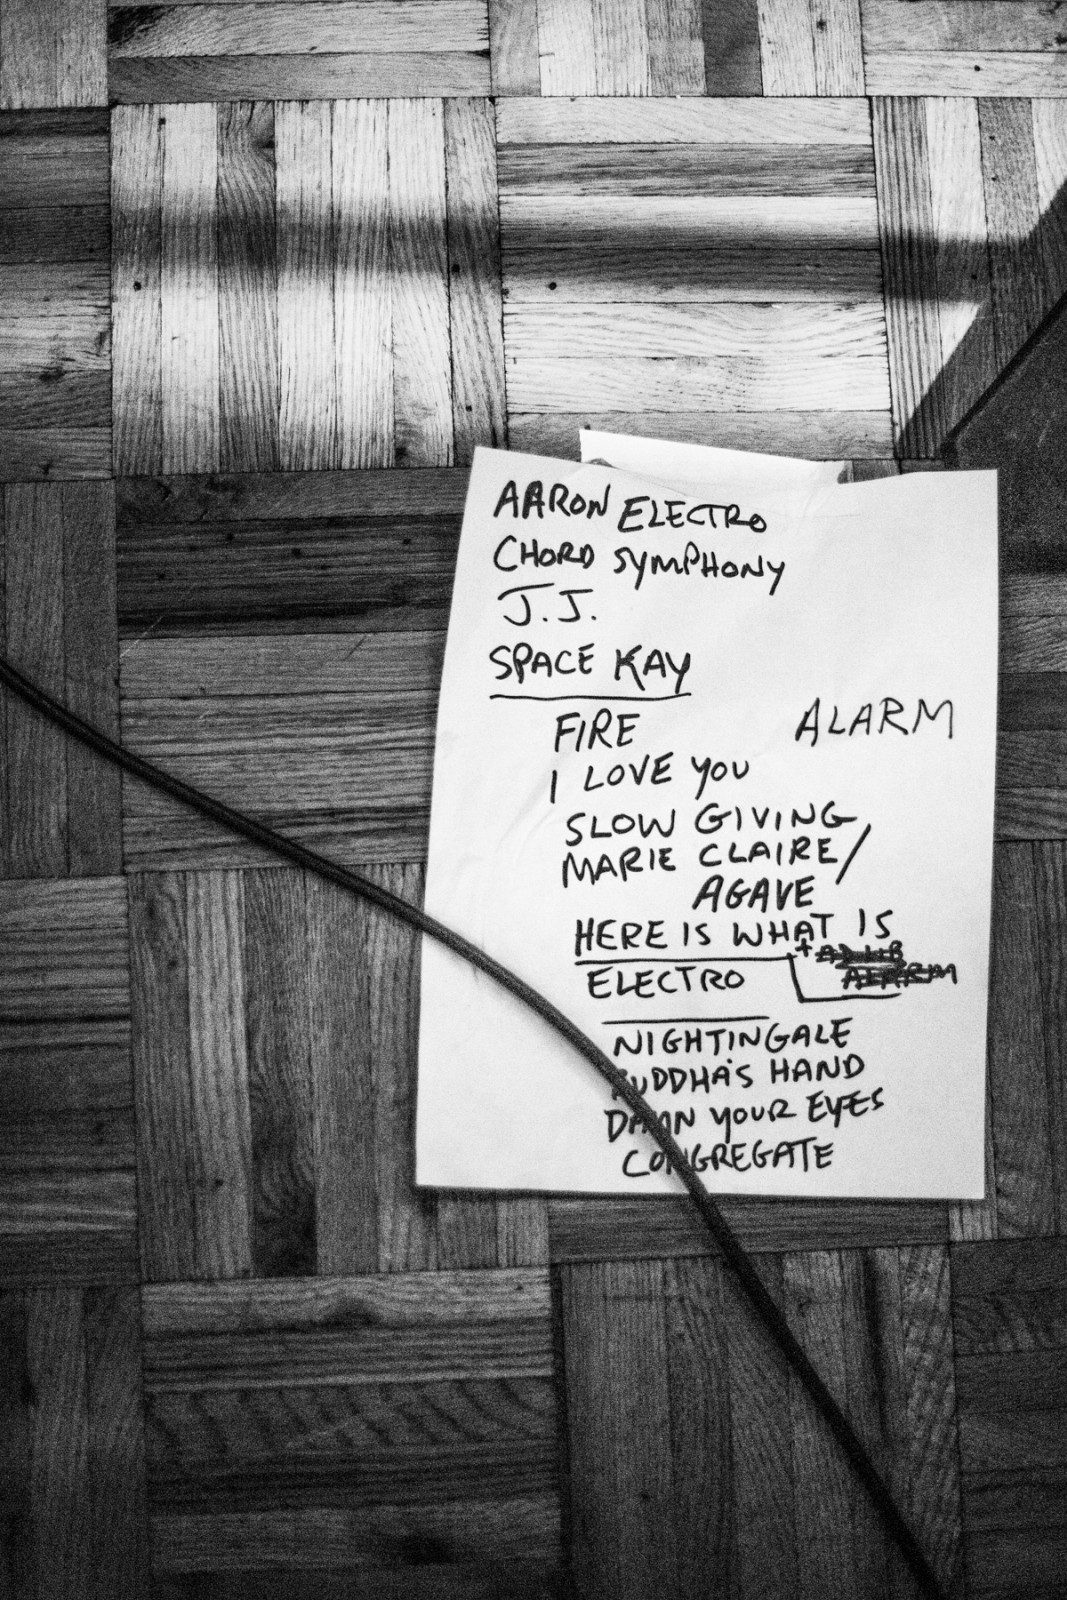 AARON ELECTRO
CHORD SYMPHONY
J.J.
SPACE KAY
FIRE ALARM
I LOVE YOU
SLOW GIVING
MARIE CLAIRE/
AGAVE
HERE IS WHAT IS
+ AD LIB
ELECTRO ALARM
NIGHTINGALE
BUDDHA'S HAND
DAMN YOUR EYES
CONGREGATE